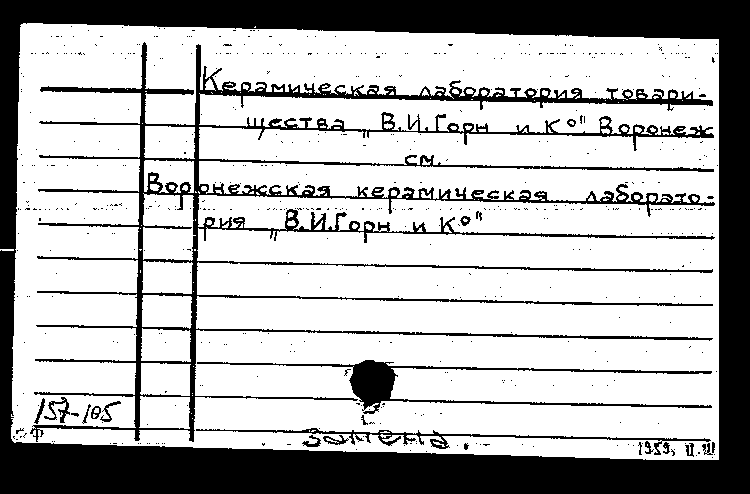 Керамическая лаборатория товари-
щества „В.И.Горн и К°". Воронеж
см.
Воронежская керамическая лаборато-
рия „В.И.Горн и К°"
157-105
замена.
1959, II.III